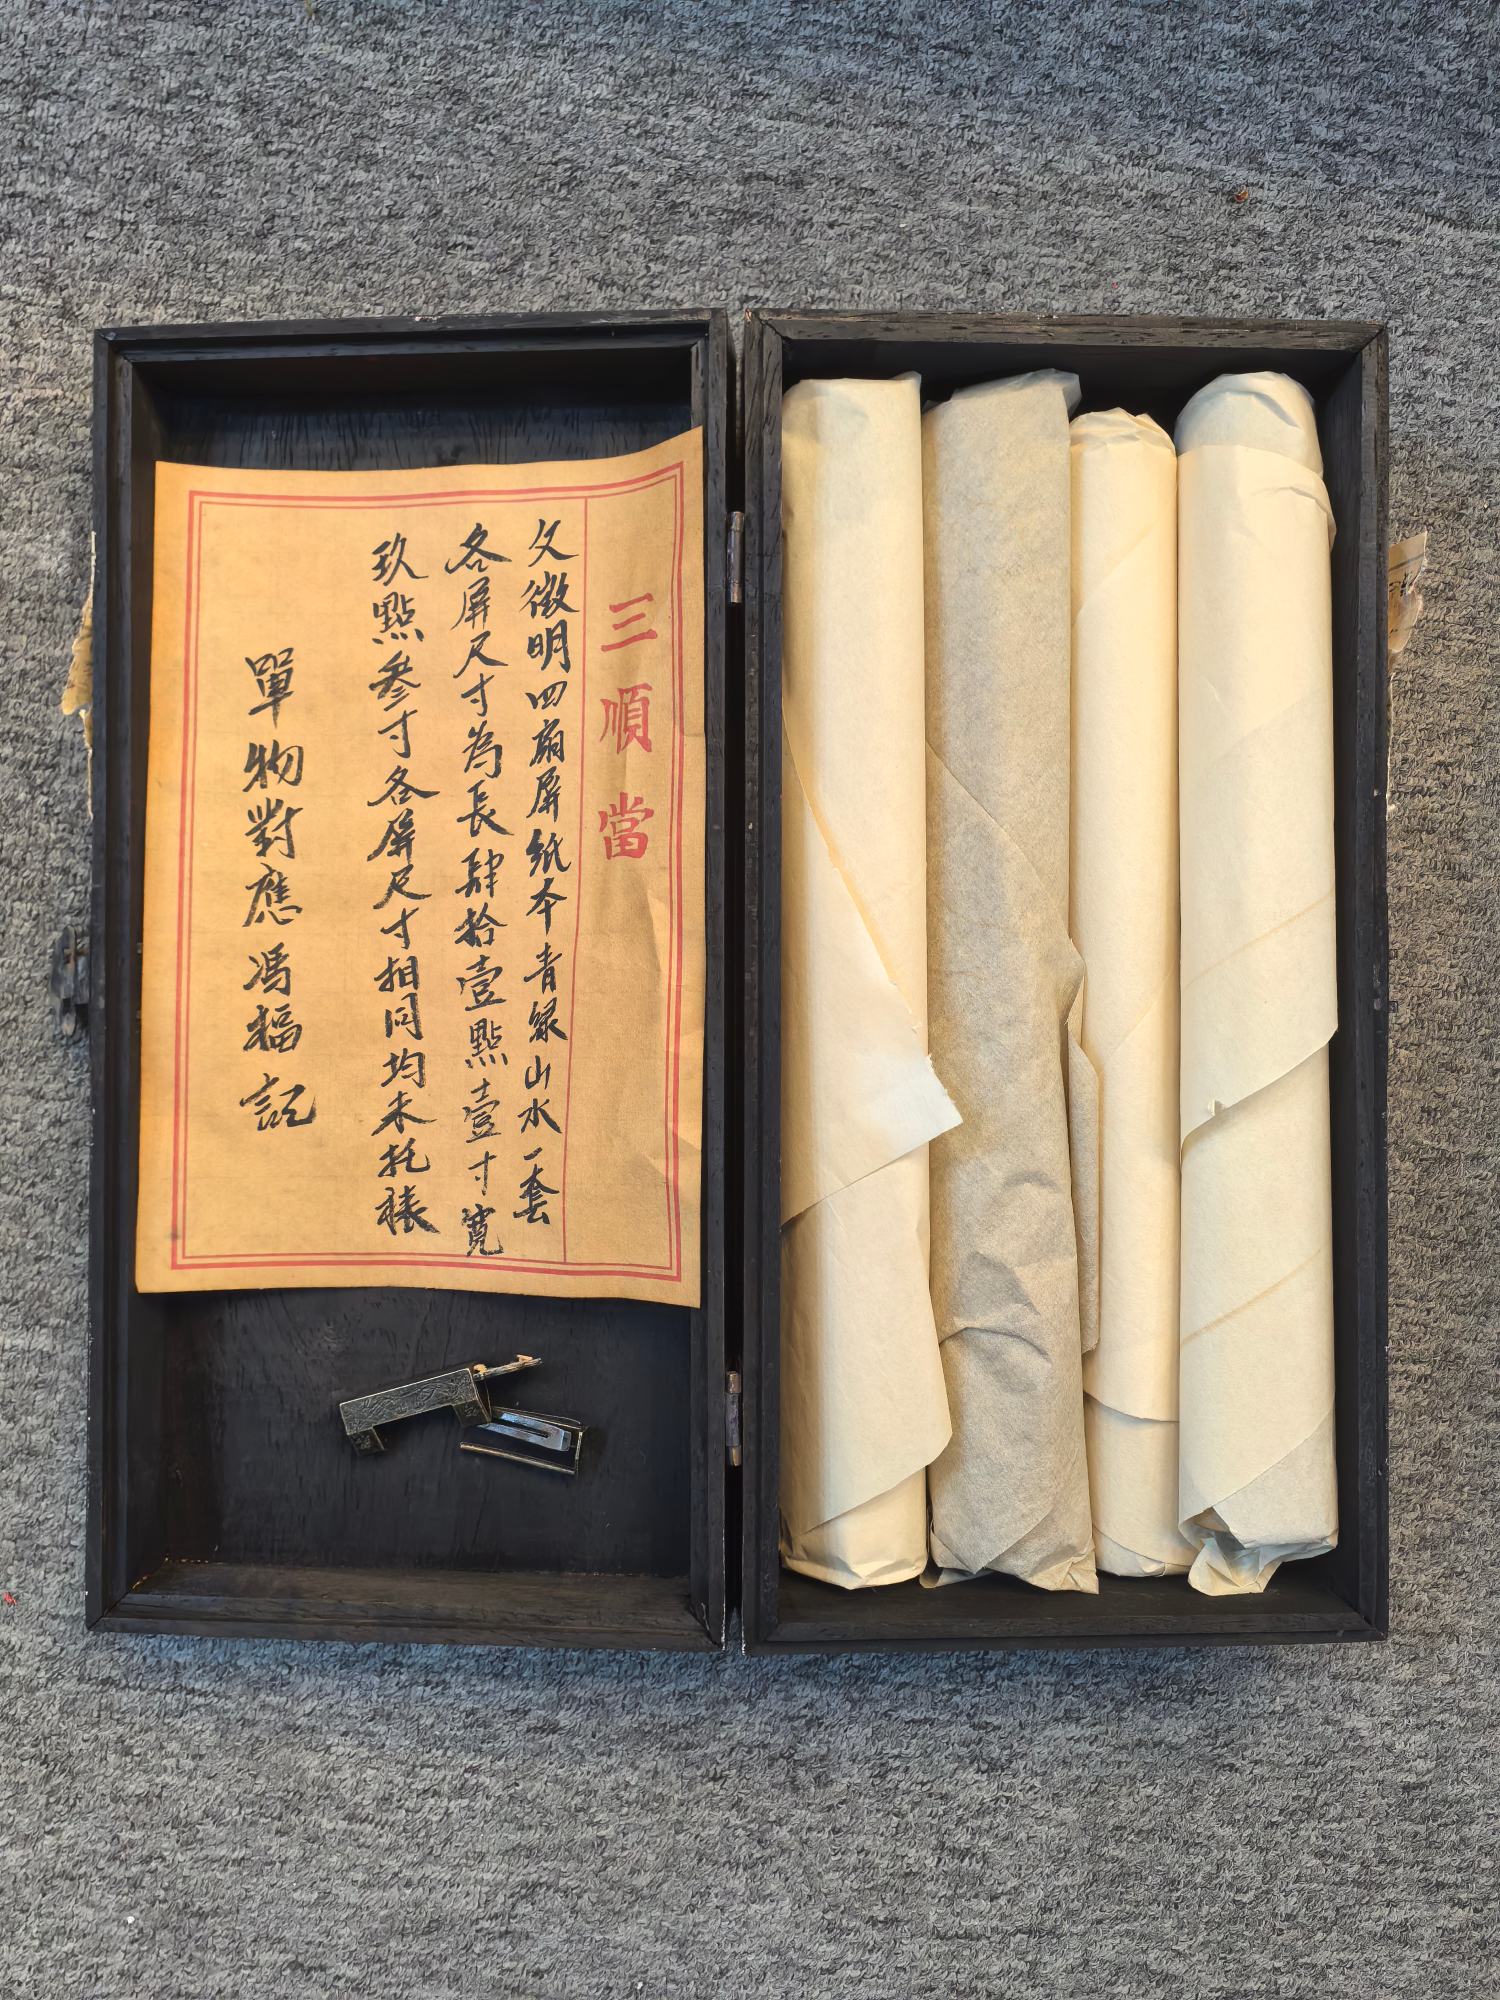 三順當
文徵明四扇屏紙本青緑山水一套
各屏尺寸為長肆拾壹點壹寸寬
玖點參寸各屏尺寸相同均未托裱
單物對應馮福記